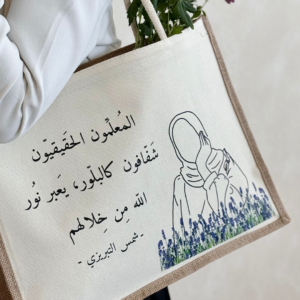 المُعلّمون الحَقيقيّون
شَفّافون كالبلّور، يَعبر نُور
اللّه مِن خِلالهم
-شمس التبريزي-